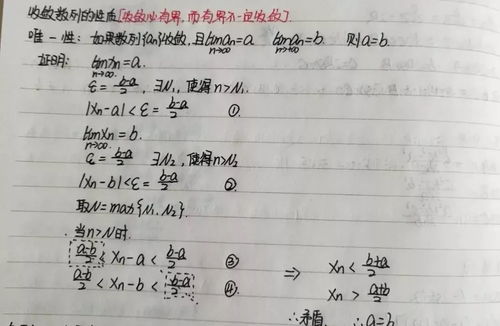 收敛数列的性质[收敛必有界,而有界不一定收敛].
唯一性: 如果数列{an}收敛,且lim an=a lim an=b. 则a=b.
n→∞ n→∞
证明: lim xn=a.
n→∞
ε=(b-a)/2, ∃N1, 使得n>N1.
|xn-a|<ε=(b-a)/2 ①.
lim xn=b.
n→∞
ε=(b-a)/2 ∃N2, 使得n>N2
|xn-b|<ε=(b-a)/2 ②
取N=max{N1,N2}.
当n>N时.
(a-b)/2 < xn-a < (b-a)/2 ③ ⇒ xn<(b+a)/2
(a-b)/2 < xn-b < (b-a)/2 ④. xn>(a+b)/2
∴矛盾. ∴a=b